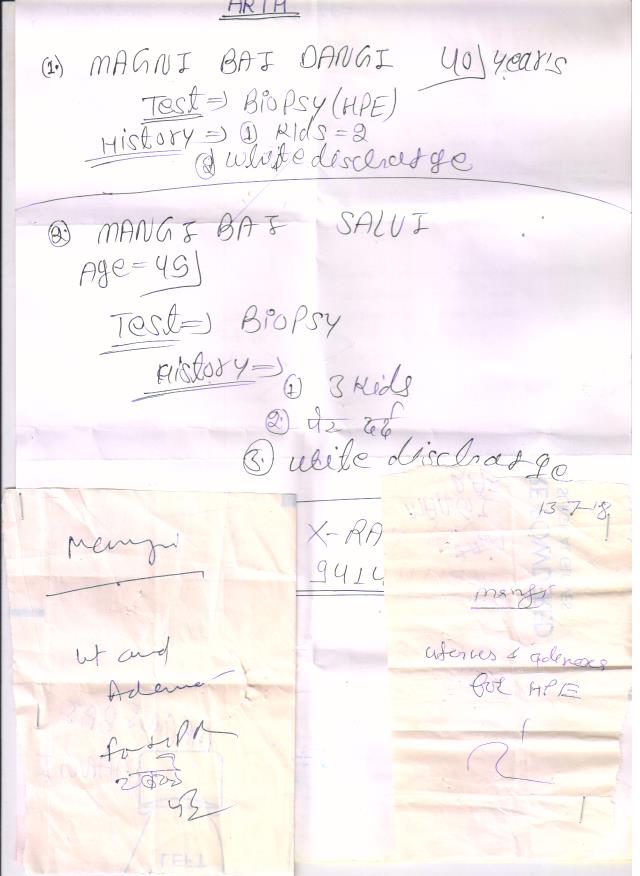 ARTH
(1.) MAGNI BAI DANGI 40 years
Test => BioPsy (HPE)
History => ① Kids = 2
② white discharge
(2.) MANGI BAI SALVI
Age = 45
Test => BioPsy
History =>
① 3 Kids
② पेट दर्द
③ white discharge
X-RA
9414
Mangi
ut and
Adenexa
for HPR
13-7-18
mangi
uterus & adenexa
for HPE
LEFT